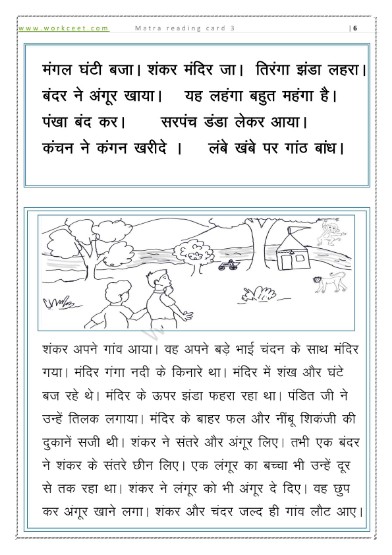 www.workceet.com Matra reading card 3 |6
मंगल घंटी बजा। शंकर मंदिर जा। तिरंगा झंडा लहरा।
बंदर ने अंगूर खाया। यह लहंगा बहुत महंगा है।
पंखा बंद कर। सरपंच डंडा लेकर आया।
कंचन ने कंगन खरीदे । लंबे खंबे पर गांठ बांध।
शंकर अपने गांव आया। वह अपने बड़े भाई चंदन के साथ मंदिर
गया। मंदिर गंगा नदी के किनारे था। मंदिर में शंख और घंटे
बज रहे थे। मंदिर के ऊपर झंडा फहरा रहा था। पंडित जी ने
उन्हें तिलक लगाया। मंदिर के बाहर फल और नींबू शिकंजी की
दुकानें सजी थी। शंकर ने संतरे और अंगूर लिए। तभी एक बंदर
ने शंकर के संतरे छीन लिए। एक लंगूर का बच्चा भी उन्हें दूर
से तक रहा था। शंकर ने लंगूर को भी अंगूर दे दिए। वह छुप
कर अंगूर खाने लगा। शंकर और चंदर जल्द ही गांव लौट आए।